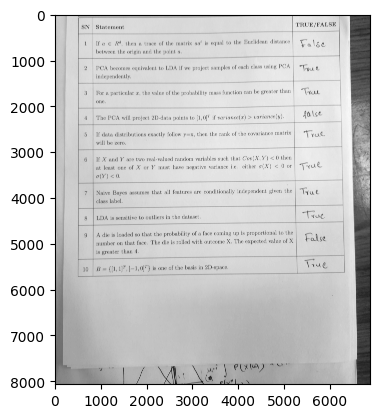 0
1000
2000
3000
4000
5000
6000
7000
8000
SN Statement TRUE/FALSE
1 If a ∈ R^d, then a trace of the matrix aa^t is equal to the Euclidean distance
between the origin and the point a.
False
2 PCA becomes equivalent to LDA if we project samples of each class using PCA
independently.
True
3 For a particular the value of the probability mass function can be greater than
one.
True
4 The PCA will project 2D-data points to [1,0]^t if variance(x) > variance(y).
false
5 If data distributions exactly follow the rank of the covariance matrix
will be zero.
True
6 If X and Y are two real-valued random variables such that Cov(X,Y) < 0 then
at least one of X or Y must have negative variance i.e. either σ(X) < 0 or
σ(Y) < 0.
True
7 Naive Bayes assumes that all features are conditionally independent given the
class label.
True
8 LDA is sensitive to outliers in the dataset.
True
9 A die is loaded so that the probability of a face coming up is proportional to the
number on that face. The die is rolled with outcome X. The expected value of X
is greater than 4.
False
10 B = {[1,1]^T, [-1,0]^T} is one of the basis in 2D-space.
True
0 1000 2000 3000 4000 5000 6000